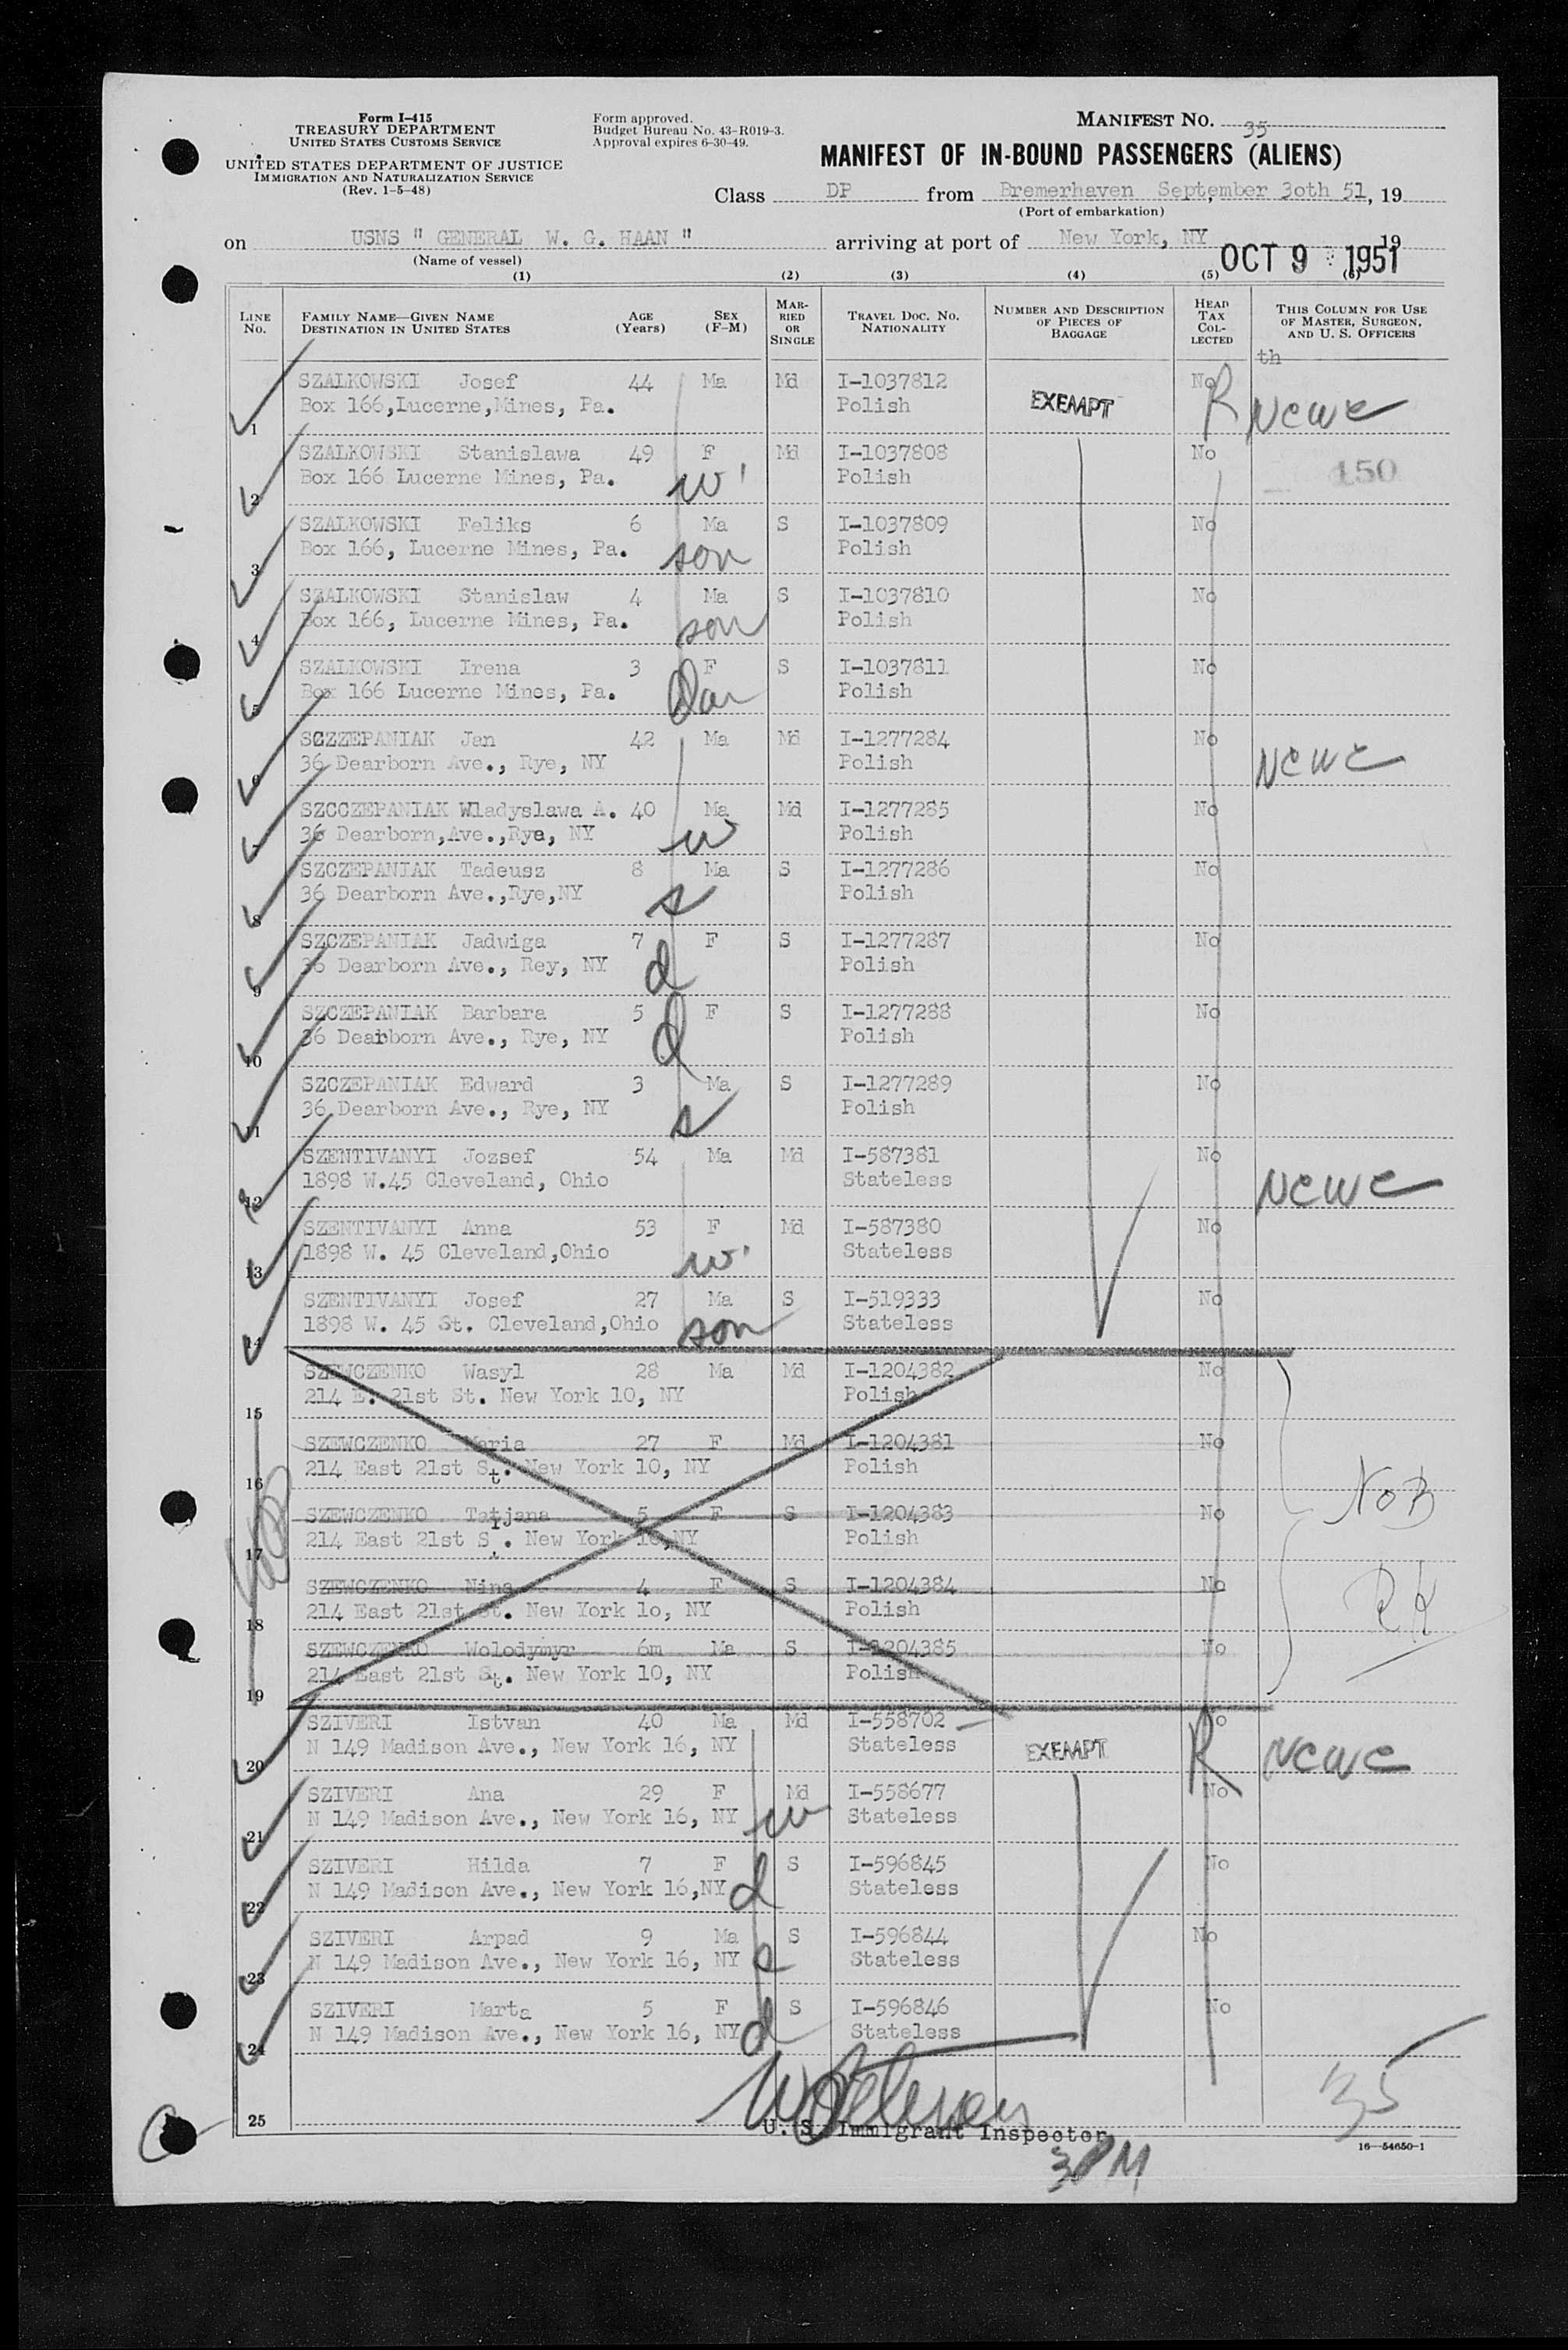 Form I-415
TREASURY DEPARTMENT
UNITED STATES CUSTOMS SERVICE
UNITED STATES DEPARTMENT OF JUSTICE
IMMIGRATION AND NATURALIZATION SERVICE
(Rev. 1-5-48)
Form approved.
Budget Bureau No. 43-R019-3.
Approval expires 6-30-49.
MANIFEST NO. 35
MANIFEST OF IN-BOUND PASSENGERS (ALIENS)
Class DP from Bremerhaven September 3oth 51, 19
(Port of embarkation)
on USNS " GENERAL W. G. HAAN " arriving at port of New York, NY 19
OCT 9 1951
(Name of vessel)
(1) (2) (3) (4) (5) (6)
LINE No. FAMILY NAME—GIVEN NAME DESTINATION IN UNITED STATES AGE (Years) SEX (F-M) MARRIED OR SINGLE TRAVEL DOC. NO. NATIONALITY NUMBER AND DESCRIPTION OF PIECES OF BAGGAGE HEAD TAX COLLECTED THIS COLUMN FOR USE OF MASTER, SURGEON, AND U. S. OFFICERS
th
SZALKOWSKI Josef 44 Ma Md I-1037812 No
1 Box 166,Lucerne,Mines, Pa. Polish EXEMPT R NCWC
SZALKOWSKI Stanislawa 49 F Md I-1037808 No
2 Box 166 Lucerne Mines, Pa. w Polish 150
SZALKOWSKI Feliks 6 Ma S I-1037809 No
3 Box 166, Lucerne Mines, Pa. son Polish
SZALKOWSKI Stanislaw 4 Ma S I-1037810 No
4 Box 166, Lucerne Mines, Pa. son Polish
SZALKOWSKI Irena 3 F S I-1037811 No
5 Box 166 Lucerne Mines, Pa. Dau Polish
SCZZEPANIAK Jan 42 Ma Md I-1277284 No
6 36 Dearborn Ave., Rye, NY Polish NCWC
SZCCZEPANIAK Wladyslawa A. 40 Ma Md I-1277285 No
7 36 Dearborn,Ave.,Rye, NY w Polish
SZCZEPANIAK Tadeusz 8 Ma S I-1277286 No
8 36 Dearborn Ave.,Rye,NY s Polish
SZCZEPANIAK Jadwiga 7 F S I-1277287 No
9 36 Dearborn Ave., Rey, NY d Polish
SZCZEPANIAK Barbara 5 F S I-1277288 No
10 36 Dearborn Ave., Rye, NY d Polish
SZCZEPANIAK Edward 3 Ma S I-1277289 No
11 36 Dearborn Ave., Rye, NY s Polish
SZENTIVANYI Jozsef 54 Ma Md I-587381 No
12 1898 W.45 Cleveland, Ohio Stateless NCWC
SZENTIVANYI Anna 53 F Md I-587380 No
13 1898 W. 45 Cleveland,Ohio w Stateless
SZENTIVANYI Josef 27 Ma S I-519333 No
14 1898 W. 45 St. Cleveland,Ohio son Stateless
SZEWCZENKO Wasyl 28 Ma Md I-1204382 No
15 214 E. 21st St. New York 10, NY Polish
SZEWCZENKO Maria 27 F Md I-1204381 No
16 214 East 21st St. New York 10, NY Polish NOB
SZEWCZENKO Tatjana 5 F S I-1204383 No
17 214 East 21st S . New York 10,NY Polish
SZEWCZENKO Nina 4 F S I-1204384 No
18 214 East 21st St. New York 1o, NY Polish
SZEWCZENKO Wolodymyr 6m Ma S I-1204385 No
19 214 East 21st St. New York 10, NY Polish
SZIVERI Istvan 40 Ma Md I-558702 No
20 N 149 Madison Ave., New York 16, NY Stateless EXEMPT R NCWC
SZIVERI Ana 29 F Md I-558677 No
21 N 149 Madison Ave., New York 16, NY w Stateless
SZIVERI Hilda 7 F S I-596845 No
22 N 149 Madison Ave., New York 16,NY d Stateless
SZIVERI Arpad 9 Ma S I-596844 No
23 N 149 Madison Ave., New York 16, NY s Stateless
SZIVERI Marta 5 F S I-596846 No
24 N 149 Madison Ave., New York 16, NY d Stateless
25 35
U. S. Immigrant Inspector
3PM
16—54650-1